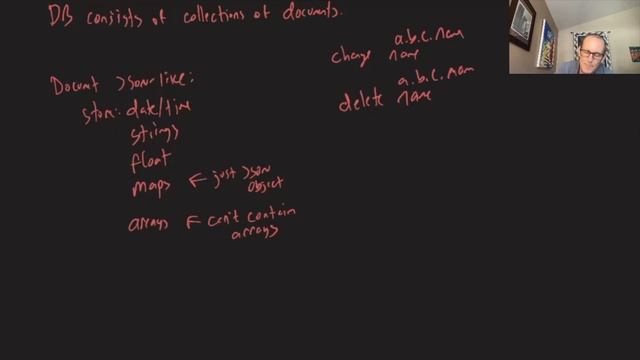 DB consists of collections of documents.
Document JSON-like:
store: date/time
strings
float
maps ← just JSON
object
arrays ← can't contain
arrays
a.b.c.name
change name
a.b.c.nam
delete name